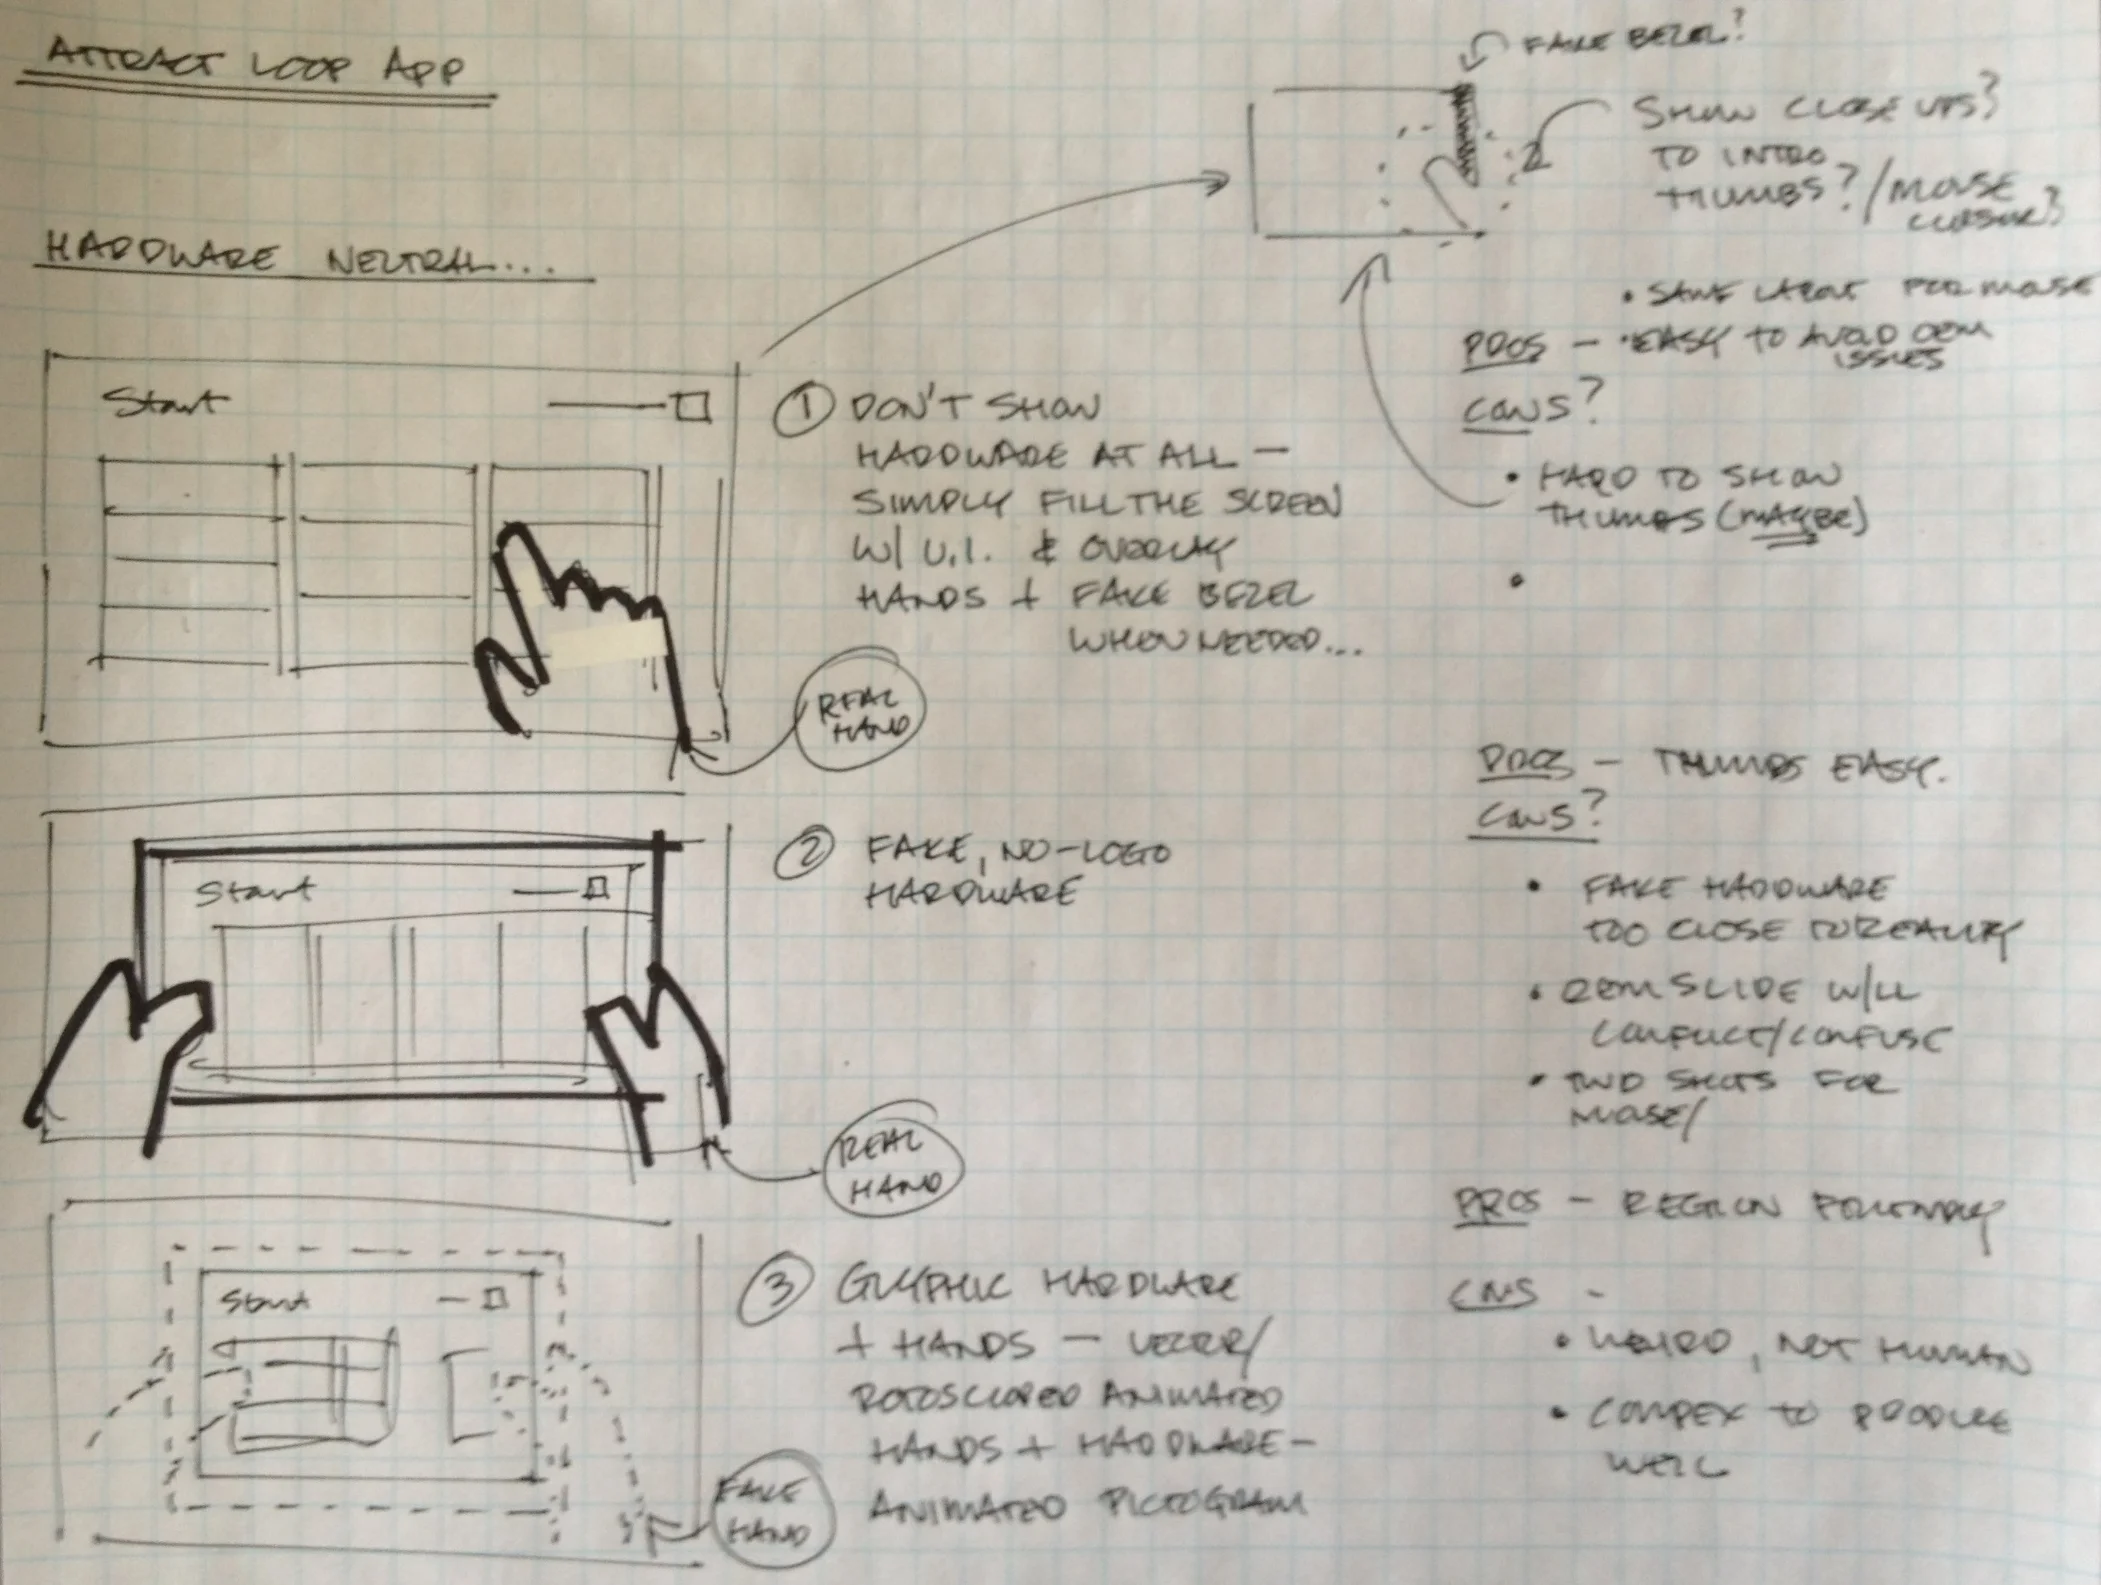 ATTRACT LOOP APP
HARDWARE NEUTRAL...
FAKE BEZEL?
SHOW CLOSE UPS?
TO INTRO
THUMBS? / MOUSE
CURSOR?
Start
① DON'T SHOW
HARDWARE AT ALL —
SIMPLY FILL THE SCREEN
W/ U.I. & OVERLAY
HANDS + FAKE BEZEL
WHEN NEEDED...
REAL
HAND
• SAME LAYOUT FOR MOUSE
PROS — • EASY TO AVOID OEM
ISSUES
CONS?
• HARD TO SHOW
THUMBS (MAYBE)
•
Start
② FAKE, NO-LOGO
HARDWARE
REAL
HAND
PROS — THUMBS EASY.
CONS?
• FAKE HARDWARE
TOO CLOSE TO REALITY
• OEM SLIDE WILL
CONFLICT/CONFUSE
• TWO SHOTS FOR
MOUSE/
Start
③ GLYPHIC HARDWARE
+ HANDS — VECTOR/
ROTOSCOPED ANIMATED
HANDS + HARDWARE —
ANIMATED PICTOGRAM
FAKE
HAND
PROS — REGION
CONS -
• WEIRD, NOT HUMAN
• COMPEX TO PRODUCE
WELL